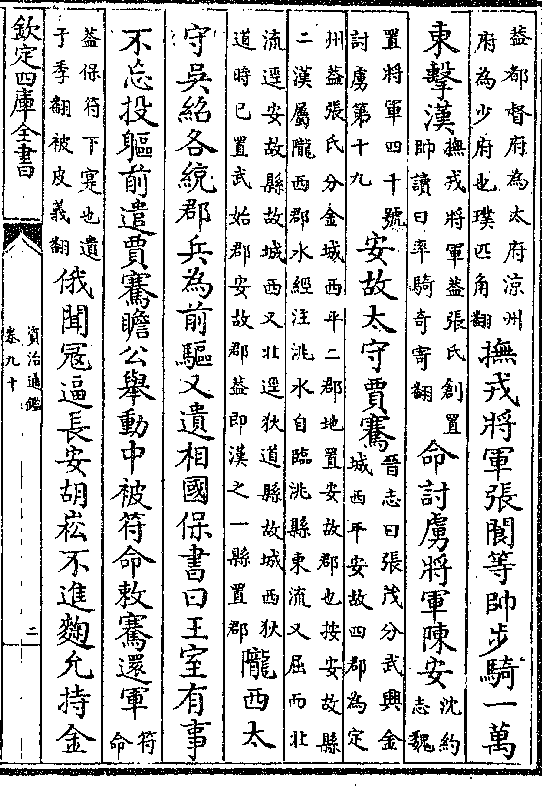 益都督府為太府涼州
府為少府也璞匹角翻
撫戎將軍張閬等帥步騎一萬
東擊漢
撫戎將軍葢張氏創置
帥讀曰率騎奇寄翻
命討虜將軍陳安
沈約
志魏
置將軍四十號
討虜第十九
安故太守賈騫
晉志曰張茂分武興金
城西平安故四郡為定
州葢張氏分金城西平二郡地置安故郡也按安故縣
二漢屬隴西郡水經注洮水自臨洮縣東流又屈而北
流逕安故縣故城西又北逕狄道縣故城西狄
道時已置武始郡安故郡葢即漢之一縣置郡
隴西太
守吳紹各統郡兵為前驅又遺相國保書曰王室有事
不忘投軀前遣賈騫瞻公舉動中被符命敕騫還軍
符
命
葢保符下寔也遺
于季翻被皮義翻
俄聞寇逼長安胡崧不進麴允持金
欽定四庫全書
資治通鑑
卷九十
二